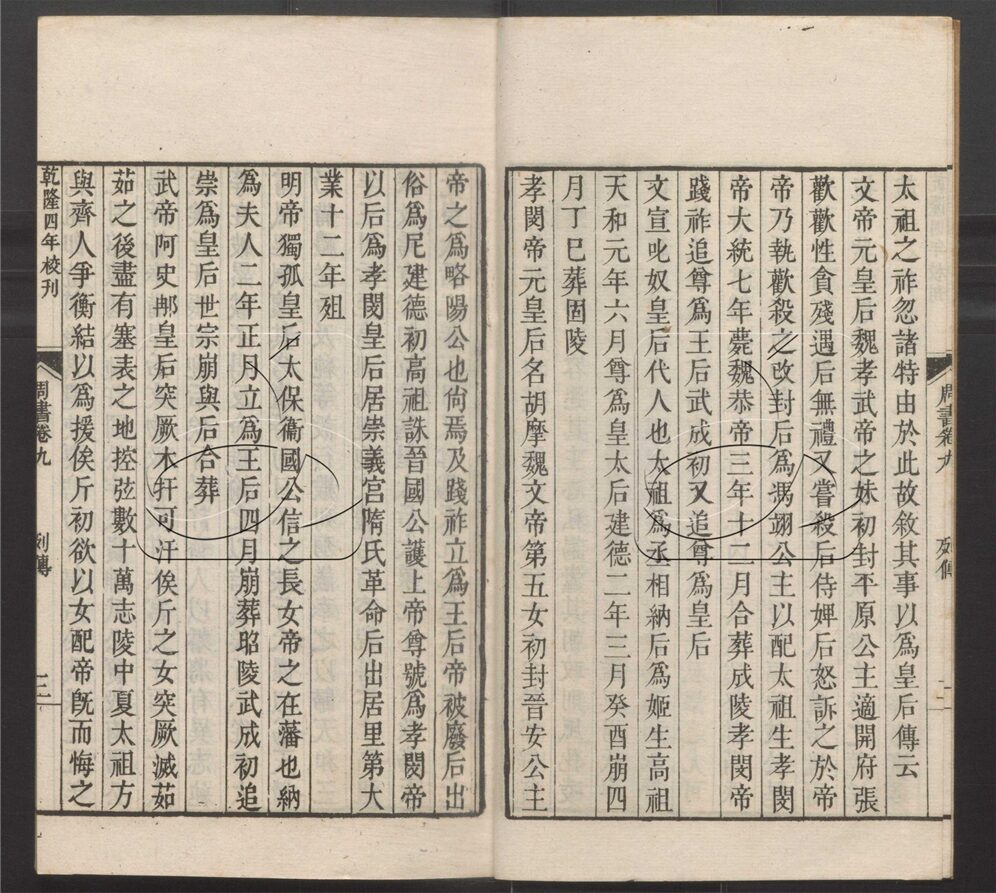 太祖之祚忽諸特由於此故敘其事以爲皇后傳云
文帝元皇后魏孝武帝之妹初封平原公主適開府張
歡歡性貪殘遇后無禮又嘗殺后侍婢后怒訴之於帝
帝乃執歡殺之改封后爲馮翊公主以配太祖生孝閔
帝大統七年薨魏恭帝三年十二月合葬成陵孝閔帝
踐祚追尊爲王后武成初又追尊爲皇后
文宣叱奴皇后代人也太祖爲丞相納后爲姬生高祖
天和元年六月尊爲皇太后建德二年三月癸酉崩四
月丁巳葬固陵
孝閔帝元皇后名胡摩魏文帝第五女初封晉安公主
周書卷九 列傳 二
帝之爲略陽公也尙焉及踐祚立爲王后帝被廢后出
俗爲尼建德初高祖誅晉國公護上帝尊號爲孝閔帝
以后爲孝閔皇后居崇義宮隋氏革命后出居里第大
業十二年殂
明帝獨孤皇后太保衞國公信之長女帝之在藩也納
爲夫人二年正月立爲王后四月崩葬昭陵武成初追
崇爲皇后世宗崩與后合葬
武帝阿史那皇后突厥木扞可汗俟斤之女突厥滅茹
茹之後盡有塞表之地控弦數十萬志陵中夏太祖方
與齊人爭衡結以爲援俟斤初欲以女配帝旣而悔之
乾隆四年校刊 周書卷九 列傳 二